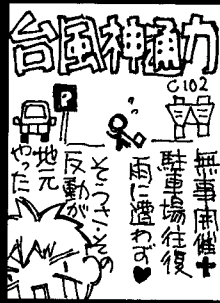 台風神通力
C102
無事開催
駐車場往復
雨に遭わず♥
そうさ・その
反動が
地元
やった
P